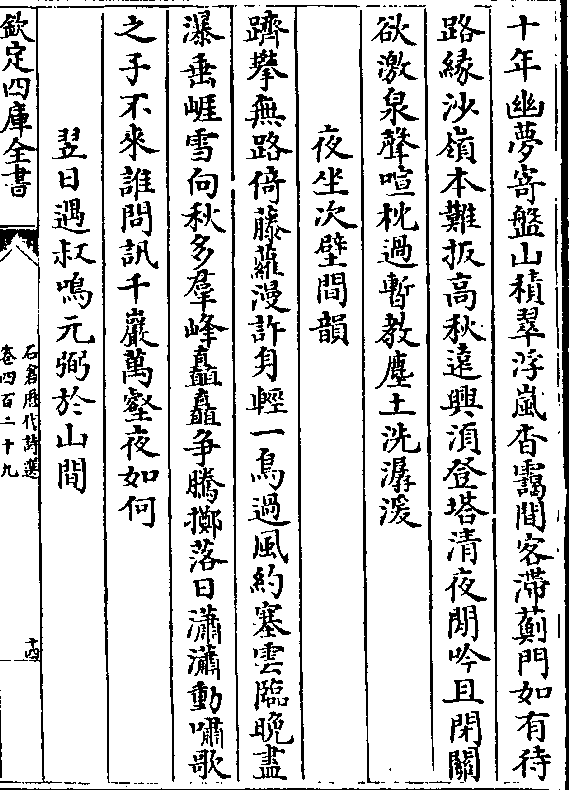 十年幽夢寄盤山積翠浮嵐杳靄間客滯薊門如有待
路緣沙嶺本難扳高秋遠興須登塔清夜閒吟且閉關
欲激泉聲喧枕過暫教塵土洗潺湲
夜坐次壁間韻
躋攀無路倚藤蘿漫許身輕一鳥過風約塞雲臨晚盡
瀑垂崕雪向秋多羣峰矗矗争騰擲落日瀟瀟動嘯歌
之子不來誰問訊千巖萬壑夜如何
翌日遇叔鳴元弼於山間
欽定四庫全書
石倉歷代詩選
卷四百二十九
十四